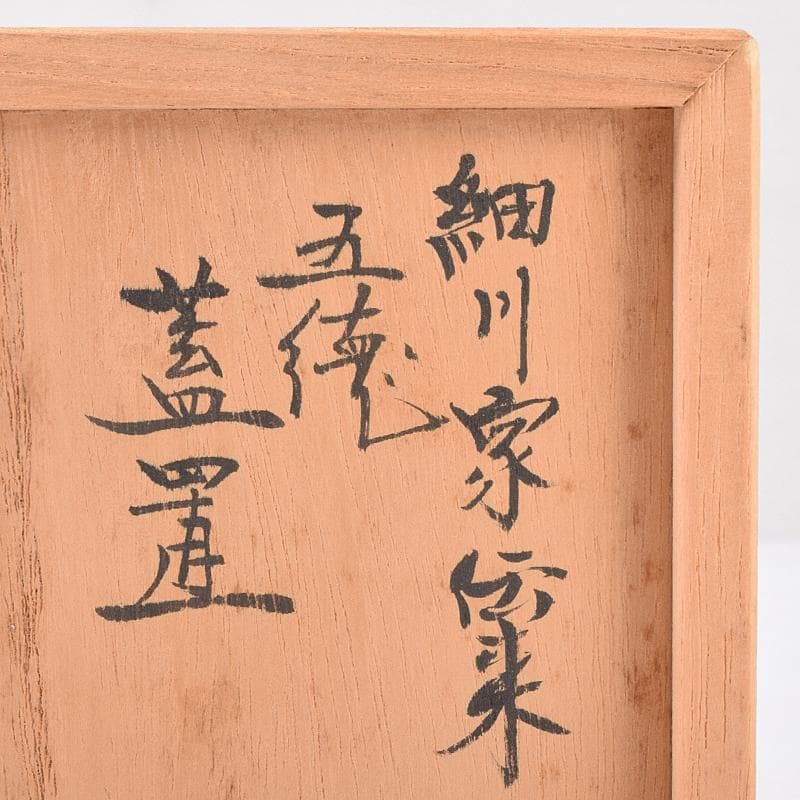 細川家伝来
五徳
蓋置